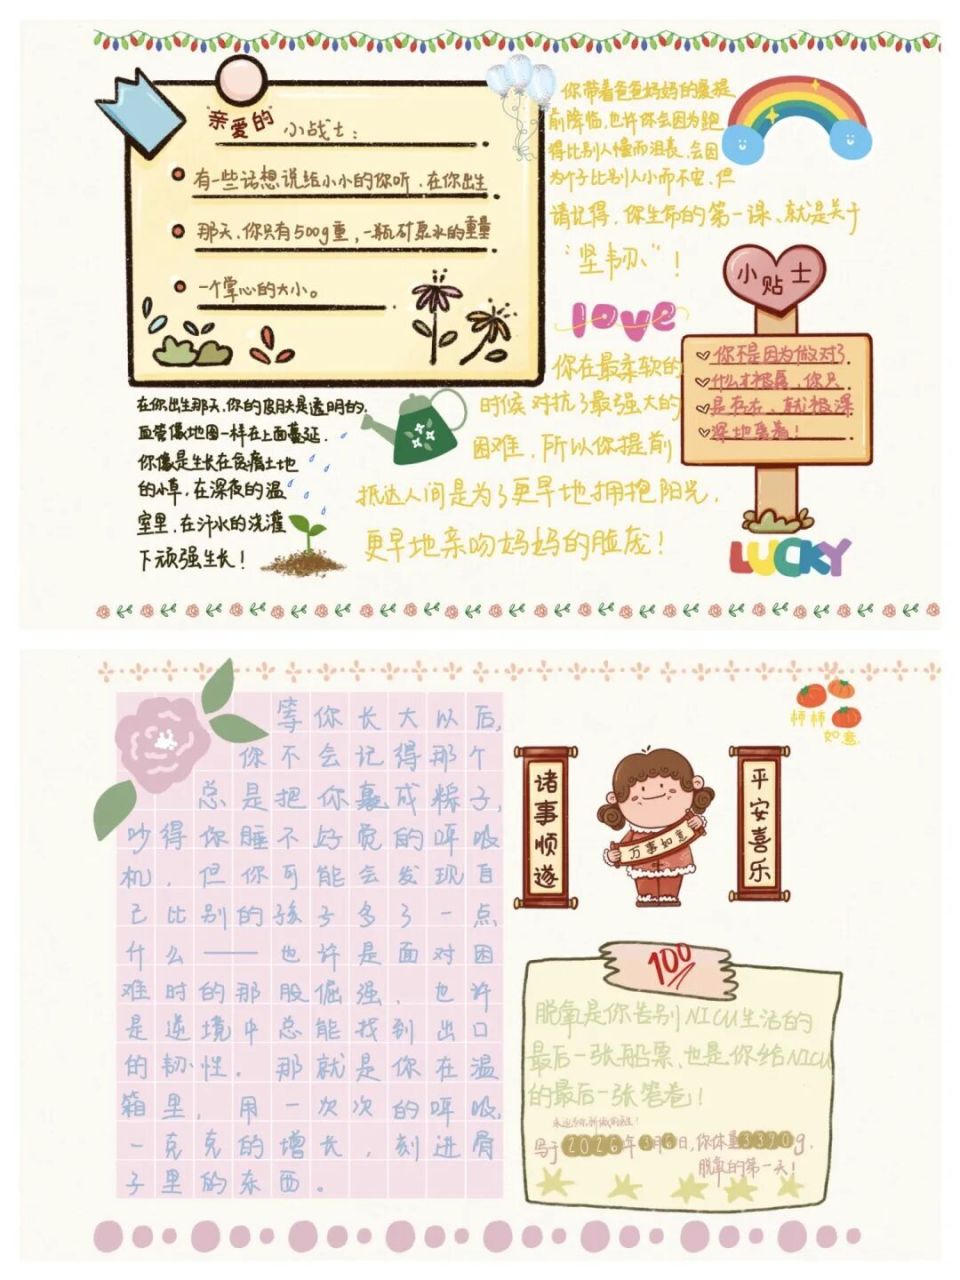 "亲爱的"小战士：
有一些话想说给小小的你听，在你出生
那天，你只有500g重，一瓶矿泉水的重量
一个掌心的大小。
在你出生那天，你的皮肤是透明的，
血管像地图一样在上面蔓延，
你像是生长在贫瘠土地
的小草，在深夜的温
室里，在汗水的浇灌
下顽强生长！
你带着爸爸妈妈的爱提
前降临，也许你会因为跑
得比别人慢而沮丧，会因
为个子比别人小而不安，但
请记得，你生命的第一课、就是关于
"坚韧"！
love
你在最柔软的
时候对抗了最强大的
困难，所以你提前
抵达人间是为了更早地拥抱阳光，
更早地亲吻妈妈的脸庞！
小贴士
你不是因为做对了
什么才被爱，你只
是存在、就被深
深地爱着！
LUCKY
等你长大以后，
你不会记得那个
总是把你裹成粽子，
吵得你睡不好觉的呼吸
机，但你可能会发现自
己比别的孩子多了一点
什么——也许是面对困
难时的那股倔强，也许
是逆境中总能找到出口
的韧性。那就是你在温
箱里，用一次次的呼吸，
一克克的增长，刻进骨
子里的东西。
柿柿
如意
诸事顺遂
万事如意
平安喜乐
100
脱氧是你告别NICU生活的
最后一张船票，也是你给NICU
的最后一张答卷！
写于2026年3月6日，你体重3390g，
脱氧的第一天！